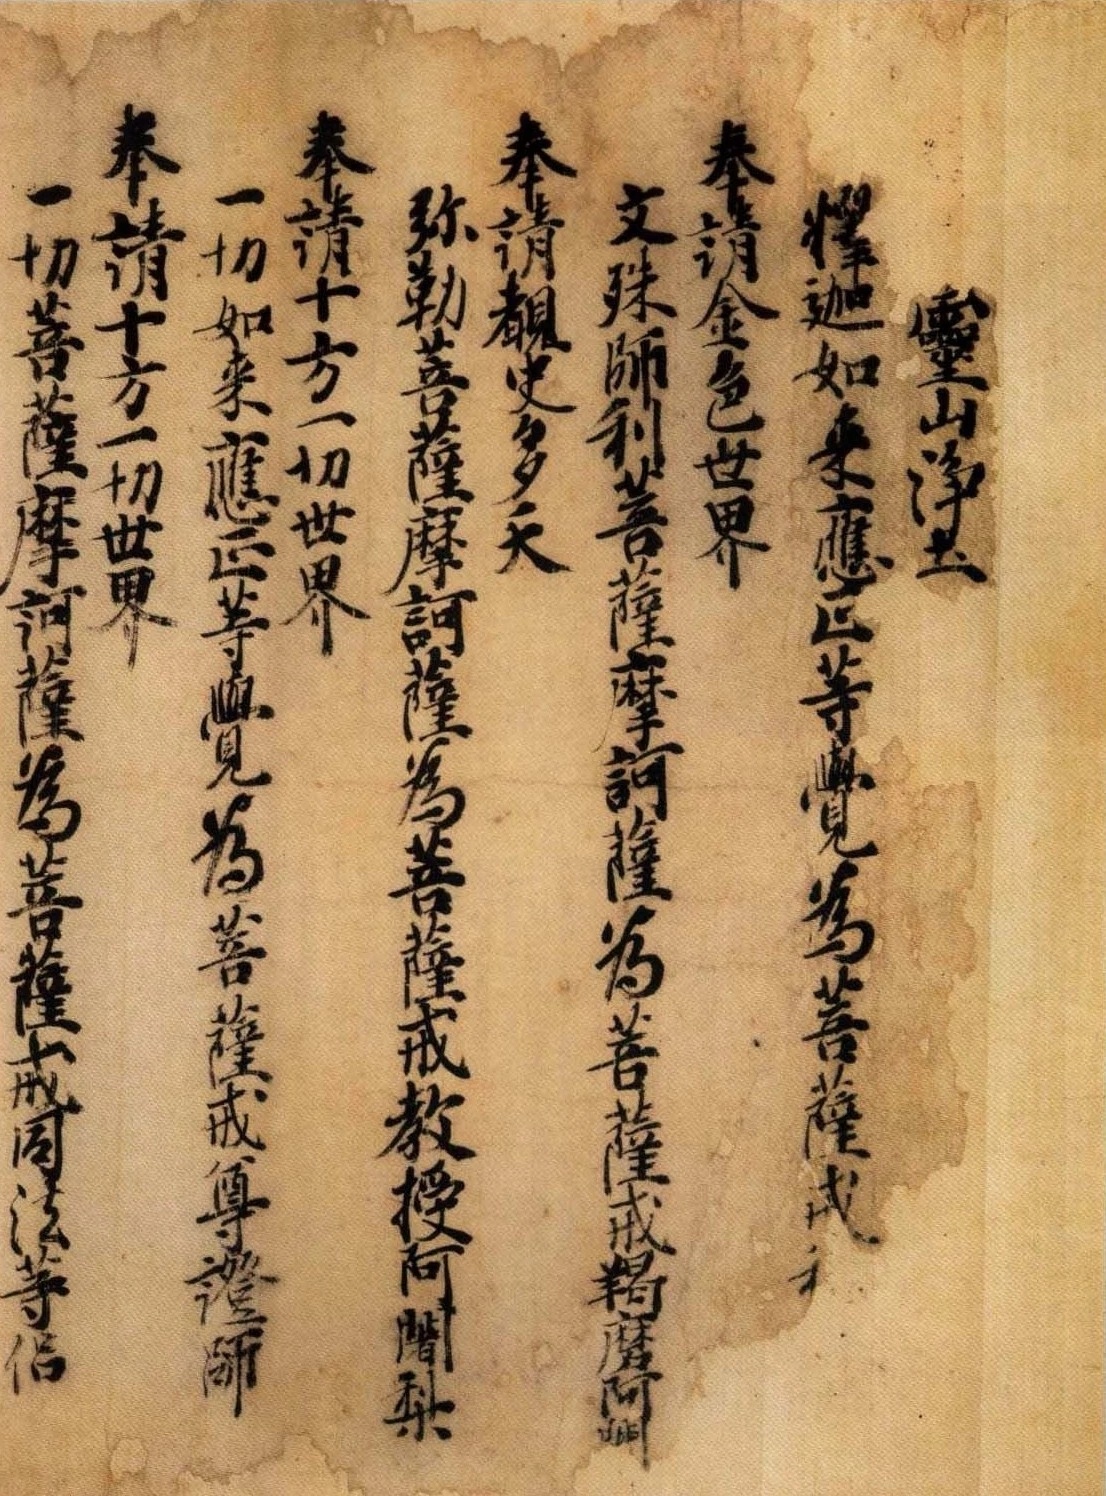 靈山淨土
釋迦如来應正等覺為菩薩戒和
奉請金色世界
文殊師利菩薩摩訶薩為菩薩戒羯磨阿
奉請覩史多天
弥勒菩薩摩訶薩為菩薩戒教授阿闍梨
奉請十方一切世界
一切如来應正等覺為菩薩戒尊證師
奉請十方一切世界
一切菩薩摩訶薩為菩薩戒同法等侶